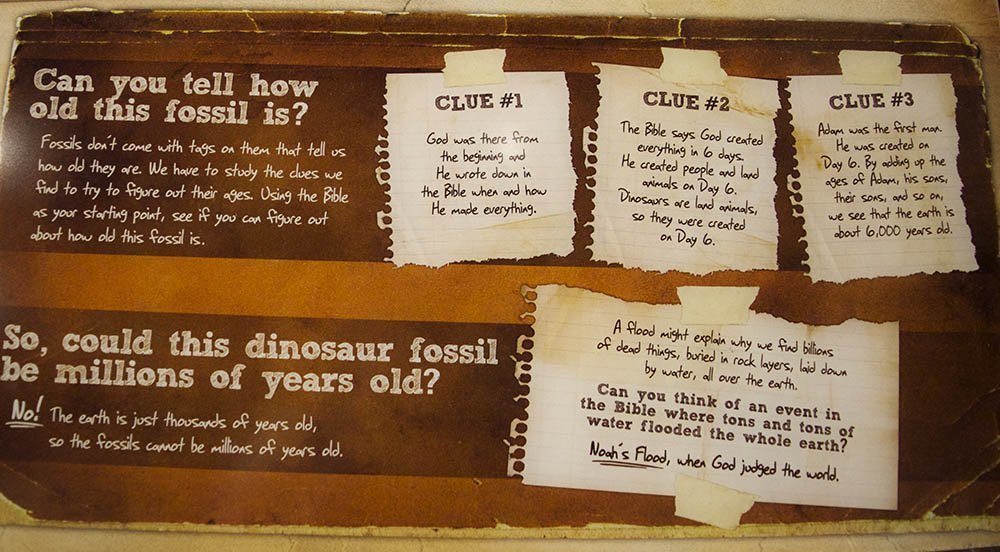 Can you tell how
old this fossil is?
Fossils don't come with tags on them that tell us
how old they are. We have to study the clues we
find to try to figure out their ages. Using the Bible
as your starting point, see if you can figure out
about how old this fossil is.
CLUE #1
God was there from
the beginning and
He wrote down in
the Bible when and how
He made everything.
CLUE #2
The Bible says God created
everything in 6 days.
He created people and land
animals on Day 6.
Dinosaurs are land animals,
so they were created
on Day 6.
CLUE #3
Adam was the first man.
He was created on
Day 6. By adding up the
ages of Adam, his sons,
their sons, and so on,
we see that the earth is
about 6,000 years old.
So, could this dinosaur fossil
be millions of years old?
No! The earth is just thousands of years old,
so the fossils cannot be millions of years old.
A flood might explain why we find billions
of dead things, buried in rock layers, laid down
by water, all over the earth.
Can you think of an event in
the Bible where tons and tons of
water flooded the whole earth?
Noah's Flood, when God judged the world.